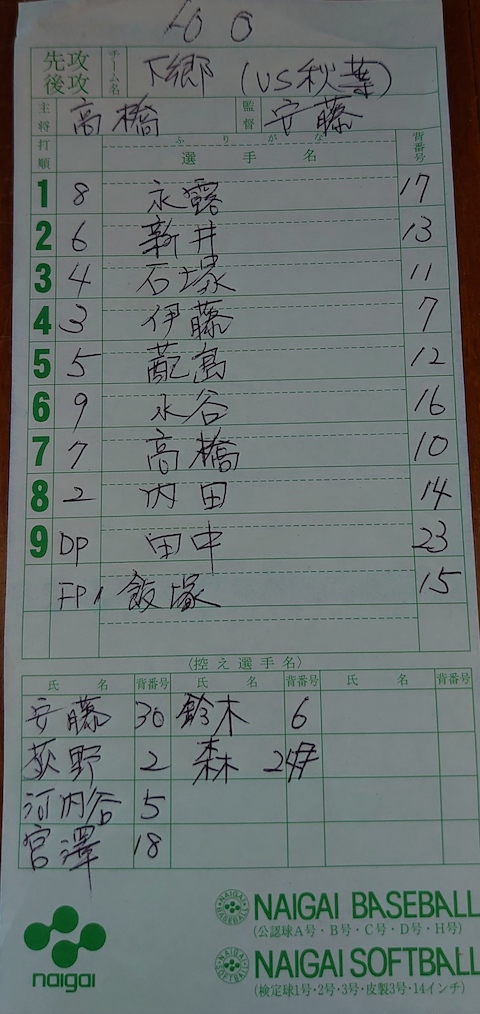 先攻 後攻 チーム名 下郷 (VS秋葉)
主将 高橋 監督 安藤
打順 ふりがな 選手名 背番号
1 8 永露 17
2 6 新井 13
3 4 石塚 11
4 3 伊藤 7
5 5 蓜島 12
6 9 水谷 16
7 7 高橋 10
8 2 内田 14
9 DP 田中 23
FP 1 飯塚 15
(控え選手名)
氏名 背番号 氏名 背番号 氏名 背番号
安藤 30 鈴木 6
荻野 2 森
河内谷 5
宮澤 18
naigai
NAIGAI BASEBALL
(公認球A号・B号・C号・D号・H号)
NAIGAI SOFTBALL
(検定球1号・2号・3号・皮製3号・14インチ)